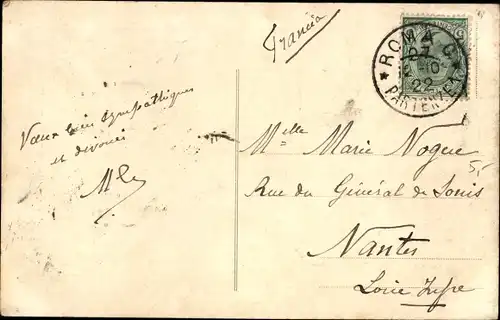 Francia
ROMA C.
22
Vœux bien sympathiques
et dévoués
Mlle Marie Nogue
Rue du Général de Sonis
Nantes
Loire Infre
5,-